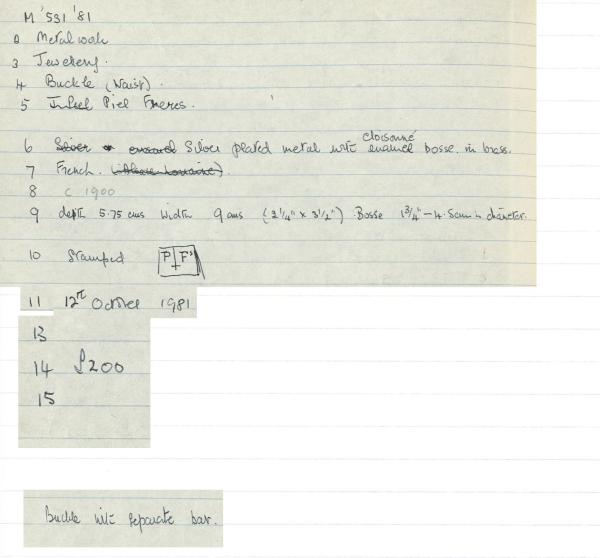 M '531 '81
2 Metalwork
3 Jewellery.
4 Buckle (Waist).
5 Piel Freres.
cloisonné
6 Silver or enamel Silver plated metal with enamel bosse. in brass.
7 French. (Alsace Lorraine).
8 c 1900
9 depth 5.75 cms width 9 cms (2 1/4" x 3 1/2") Bosse 1 3/4" - 4.5cm in diameter.
10 Stamped P F's
11 12th October 1981
13
14 £200
15
Buckle with separate bar.